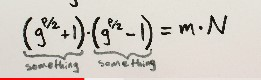 (g^{p/2}+1)·(g^{p/2}-1) = m·N
something something